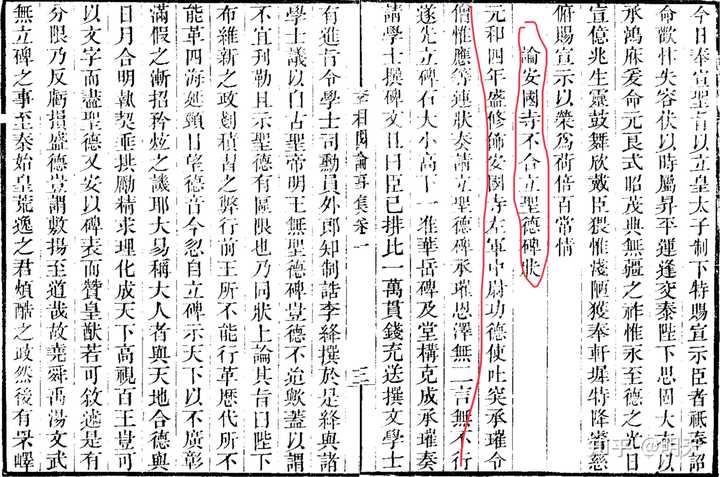 今日奉宣聖旨以立皇太子制下特賜宣示臣者祇奉詔
命歡忭失容伏以時屬昇平運逢交泰陛下思固大本以
承鴻庥爰命元良式昭茂典無疆之祚惟永至德之光日
宣億兆生靈鼓舞欣戴臣猥惟淺陋獲奉軒墀特降宸慈
俯賜宣示以榮爲荷倍百常情
論安國寺不合立聖德碑狀
元和四年盛修飾安國寺左軍中尉功德使吐突承璀令
僧惟應等連狀奏請立聖德碑承璀恩澤無二言無不行
遂先立碑石大小高下一准華岳碑及堂構克成承璀奏
請學士撰碑文且曰臣已排比一萬貫錢充送撰文學士
李相國論事集卷一
三
有進旨令學士司勳員外郎知制誥李絳撰於是絳與諸
學士議以自古聖帝明王無聖德碑豈德不逾歟蓋以謂
不宜刊勒且示聖德有區限也乃同狀上論其旨曰陛下
布維新之政剗積習之弊行前王所不能行革歷代所不
能革四海延頸日望德音今忽自立碑示天下以不廣彰
滿假之漸招矜炫之議耶大易稱大人者與天地合德與
日月合明執契垂拱勵精求理化成天下高視百王豈可
以文字而盡聖德又安以碑表而贊皇猷若可敘述是有
分限乃反虧損盛德豈謂敷揚至道哉故堯舜禹湯文武
無立碑之事至秦始皇荒逸之君煩酷之政然後有罘嶧
知乎